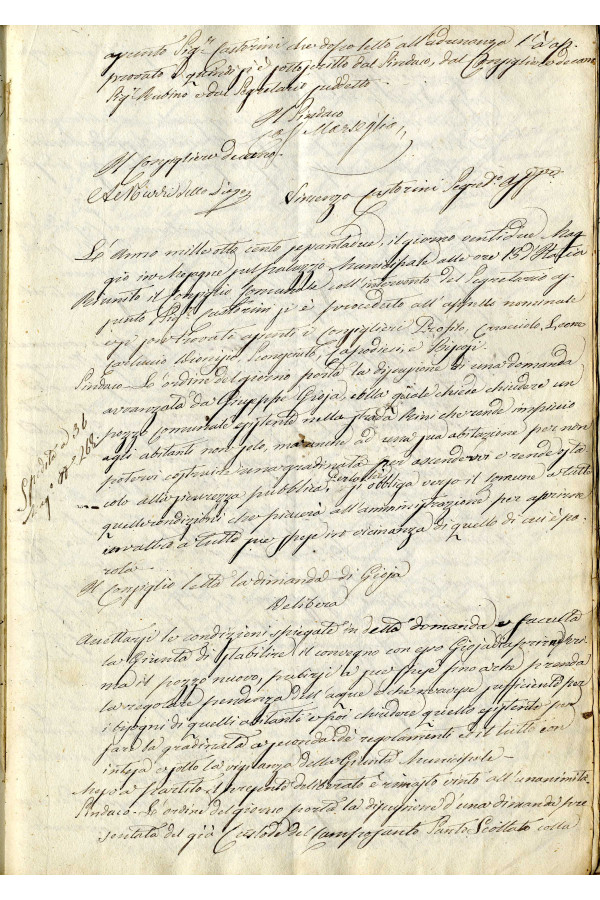 apunto Sig.r Castorini che dopo letto all'adunanza l'à ap-
provato e quindi si è sottoscritto dal Sindaco, dal Consigliere decano
Sig.r Rubino e dal Segretario suddetto
Il Sindaco
Marseglia
Il Consigliere decano
Vincenzo Castorini Seg.rio
L'Anno mille otto cento settantadue, il giorno ventidue Mag
gio in Mesagne sul palazzo Municipale alle ore 15 d'Italia
Riunito il Consiglio Comunale coll'intervento del Segretario as
sunto Sig.r Castorini si è proceduto all'appello nominale
e si son trovati assenti i Consiglieri Profilo, Caracciolo,
Dionigio, Capodieci e
Sindaco - L'ordine del giorno porta la discussione di una domanda
avanzata da Giuseppe Gioja, colla quale chiede chiudere un
pozzo Comunale esistente nella strada che rende impiccio
agli abitanti non solo, ma anche ad una sua abitazione per non
potervi costruire una gradinata per ascendervi e rende osta
colo alla sicurezza pubblica, si obbliga verso il comune a tutte
quelle condizioni che piacerà all'amministrazione per aprirne
un altro a tutte sue spese in vicinanza di quello di cui è pa-
rola
Spedita a 31
Mag.o N.o 268
Il Consiglio letta la dimanda di Gioja
Delibera
Accettarsi le condizioni spiegate in detta domanda e faculta
la Giunta di stabilire il convegno con esso Gioja di aprire pri
ma il pozzo nuovo, a sue spese fino a che prenda
la regolare pendenza dell'acque e che sufficiente per
i bisogni di quelli abitanti e poi chiudere quello esistente per
fare la gradinata a seconda dè regolamenti ed il tutto con
intesa e sotto la vigilanza della Giunta Municipale -
Messo a partito il presente deliberato è rimasto vinto all'unanimità
Sindaco - L'ordine del giorno porta la discussione d'una dimanda pre
sentata dal già Custode del Camposanto Santo Scollato colla